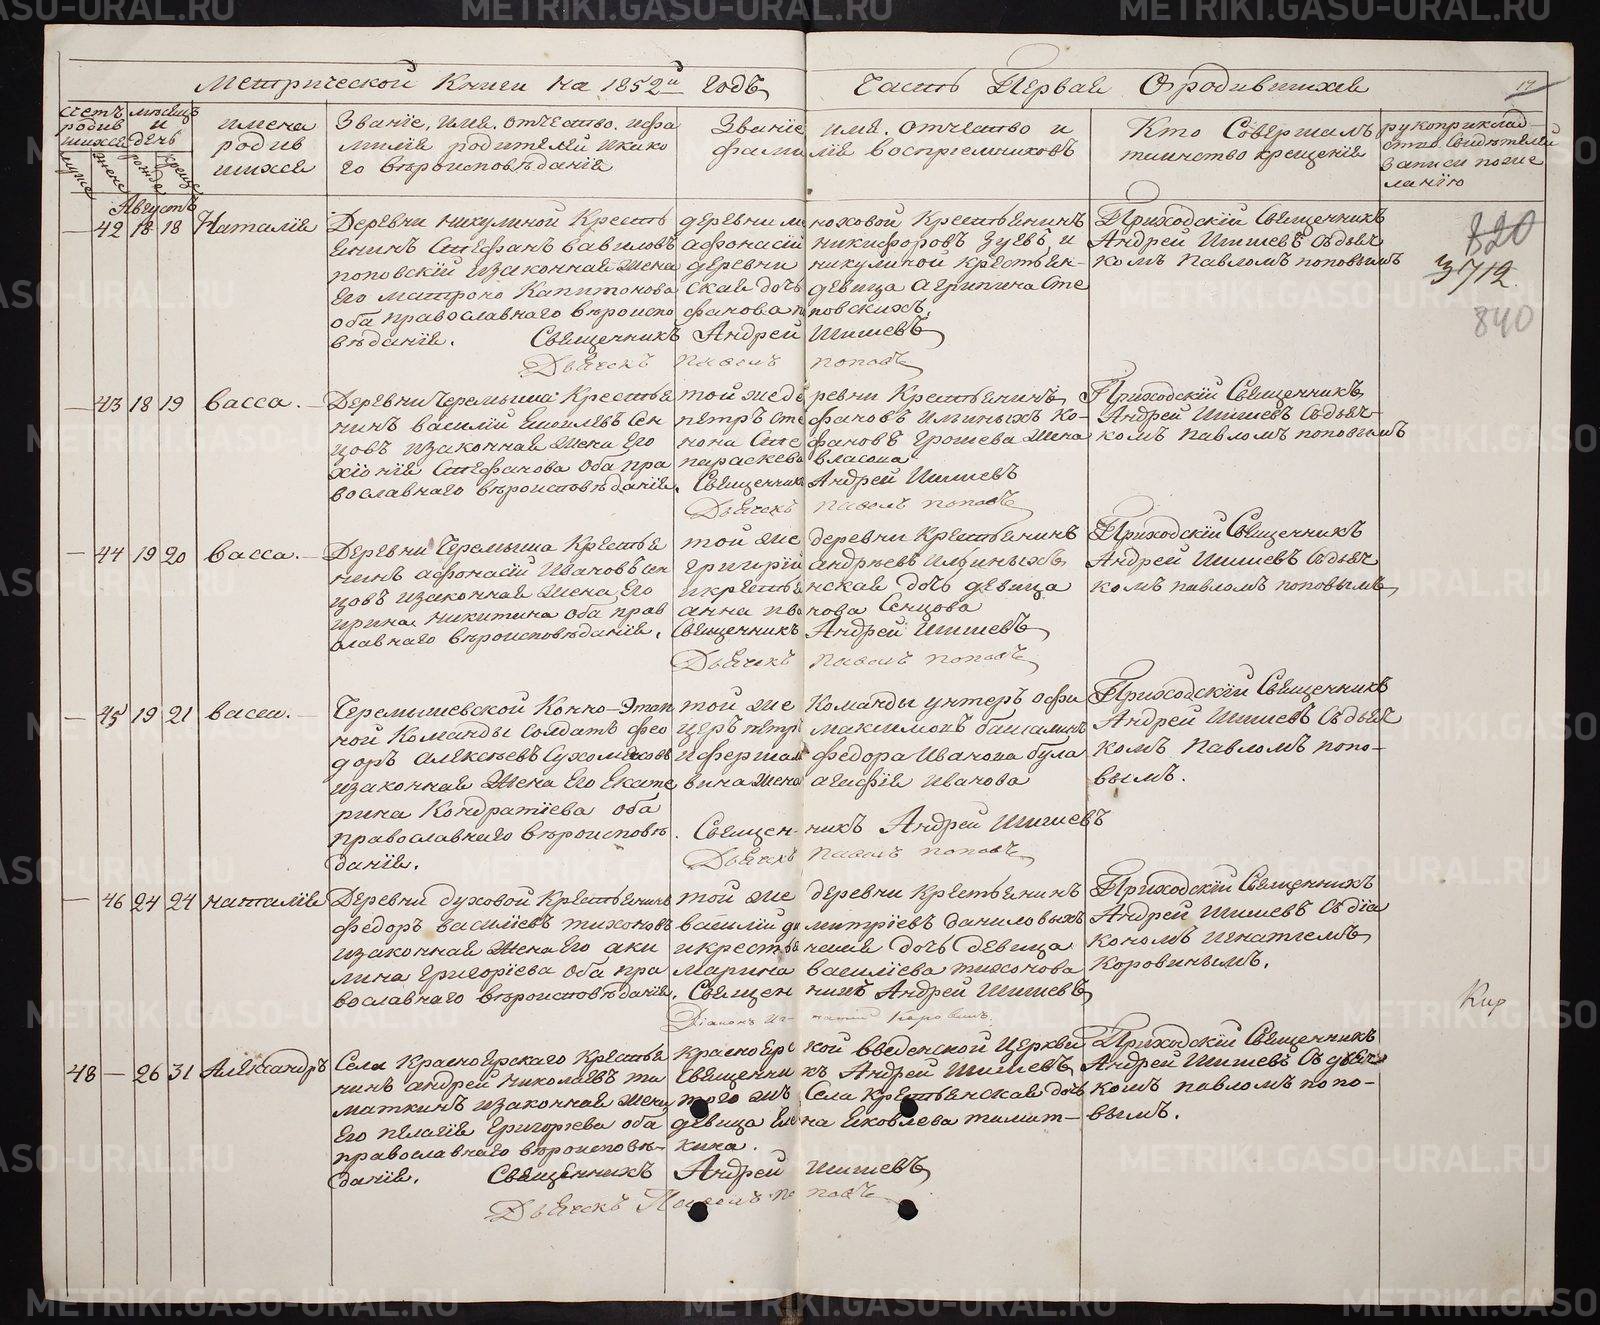 Метрической Книги на 1852й годъ Часть Первая О родившихся
17
счетъ родившихся
мѣсяцъ и день
имена родившихся
Званіе, имя, отчество, и фамилія родителей и какого вѣроисповѣданія
Званіе имя, отчество и фамилія воспріемниковъ
Кто Совершалъ таинство крещенія
рукоприкладство свидѣтелей записи по желанію
Августъ
42 18 18 Наталія
Деревни никулиной Крестья
янинъ Стефанъ вавиловъ
поповскій и законная жена
Его матрона Капитонова
оба православнаго вѣроиспо
вѣданія.
деревни мо ноховой Крестьянинъ
афонасій никифоровъ Зуевъ, и
деревни никулиной крестьян-
ская дочь девица агрипина Сте
фанова поповскихъ,
Священникъ Андрей Шишевъ
Дьячекъ павелъ поповъ
Приходскій Священникъ
Андрей Шишевъ Съ дьяч
комъ Павломъ поповымъ
820
3712
840
43 18 19 васса.
Деревни Черемыша Крестья
нинъ василій Емелевъ Сен
цовъ и законная жена Его
Хіонія Стефанова оба пра
вославнаго вѣроисповѣданія.
той же де ревни Крестьянинъ
петръ Сте фановъ Ильиныхъ Ко-
нона Сте фановъ Грошева жена
параскева власова
Священникъ Андрей Шишевъ
Дьячекъ павелъ поповъ
Приходскій Священникъ
Андрей Шишевъ Съ дьяч-
комъ Павломъ поповымъ
44 19 20 васса.
Деревни Черемыша Крестья
нинъ афонасій Ивановъ Сен
цовъ и законная жена Его
ирина никитина оба прав
славнаго вѣроисповѣданія.
той же деревни Крестьянинъ
григорій андреевъ Ильиныхъ
и крестья нская дочь девица
анна ива нова Сенцова
Священникъ Андрей Шишевъ
Дьячекъ павелъ поповъ
Приходскій Священникъ
Андрей Шишевъ Съ дьяч
комъ павломъ поповымъ
45 19 21 васса.
Черемышевской Конно-Этап
ной Команды Солдатъ фео
доръ алексѣевъ Сухомясовъ
и законная жена Его Екате
рина Кондратіева оба
православнаго вѣроисповѣ
данія.
той же Команды унтеръ офи
церъ петръ
и фершала федора Иванова була
вина жена агафія Иванова
Священ- никъ Андрей Шишевъ
Дьячекъ павелъ поповъ
Приходскій Священникъ
Андрей Шишевъ Съ дьяч
комъ Павломъ попо-
вымъ.
46 24 24 наталія
Деревни духовой Крестьянинъ
федоръ василіевъ тихоновъ
и законная жена Его аки
лина григоріева оба пра
вославнаго вѣроисповѣданія.
той же деревни Крестьянинъ
василій ди митріевъ даниловыхъ
и крестья нская дочь девица
марина василіева тихонова
Священ никъ Андрей Шишевъ
Діаконъ Иг- натій Коровинъ.
Приходскій Священникъ
Андрей Шишевъ Съ діа
кономъ игнатіемъ
Коровинымъ.
Кир
48 — 26 31 Александръ
Села Красноярскаго Крестья
нинъ андрей николаевъ та
маткинъ и законная жена
Его пелагія григоріева оба
православнаго вѣроисповѣ-
данія.
Краснояр ской введенской Церкви
Священни къ Андрей Шишевъ,
того жъ Села крестьянская дочь
девица Еле на Яковлева тамат-
кина.
Священникъ Андрей Шишевъ
Дьячекъ Павелъ поповъ
Приходскій Священникъ
Андрей Шишевъ Съ дьяч
комъ павломъ попо-
вымъ.
METRIKI.GASO-URAL.RU